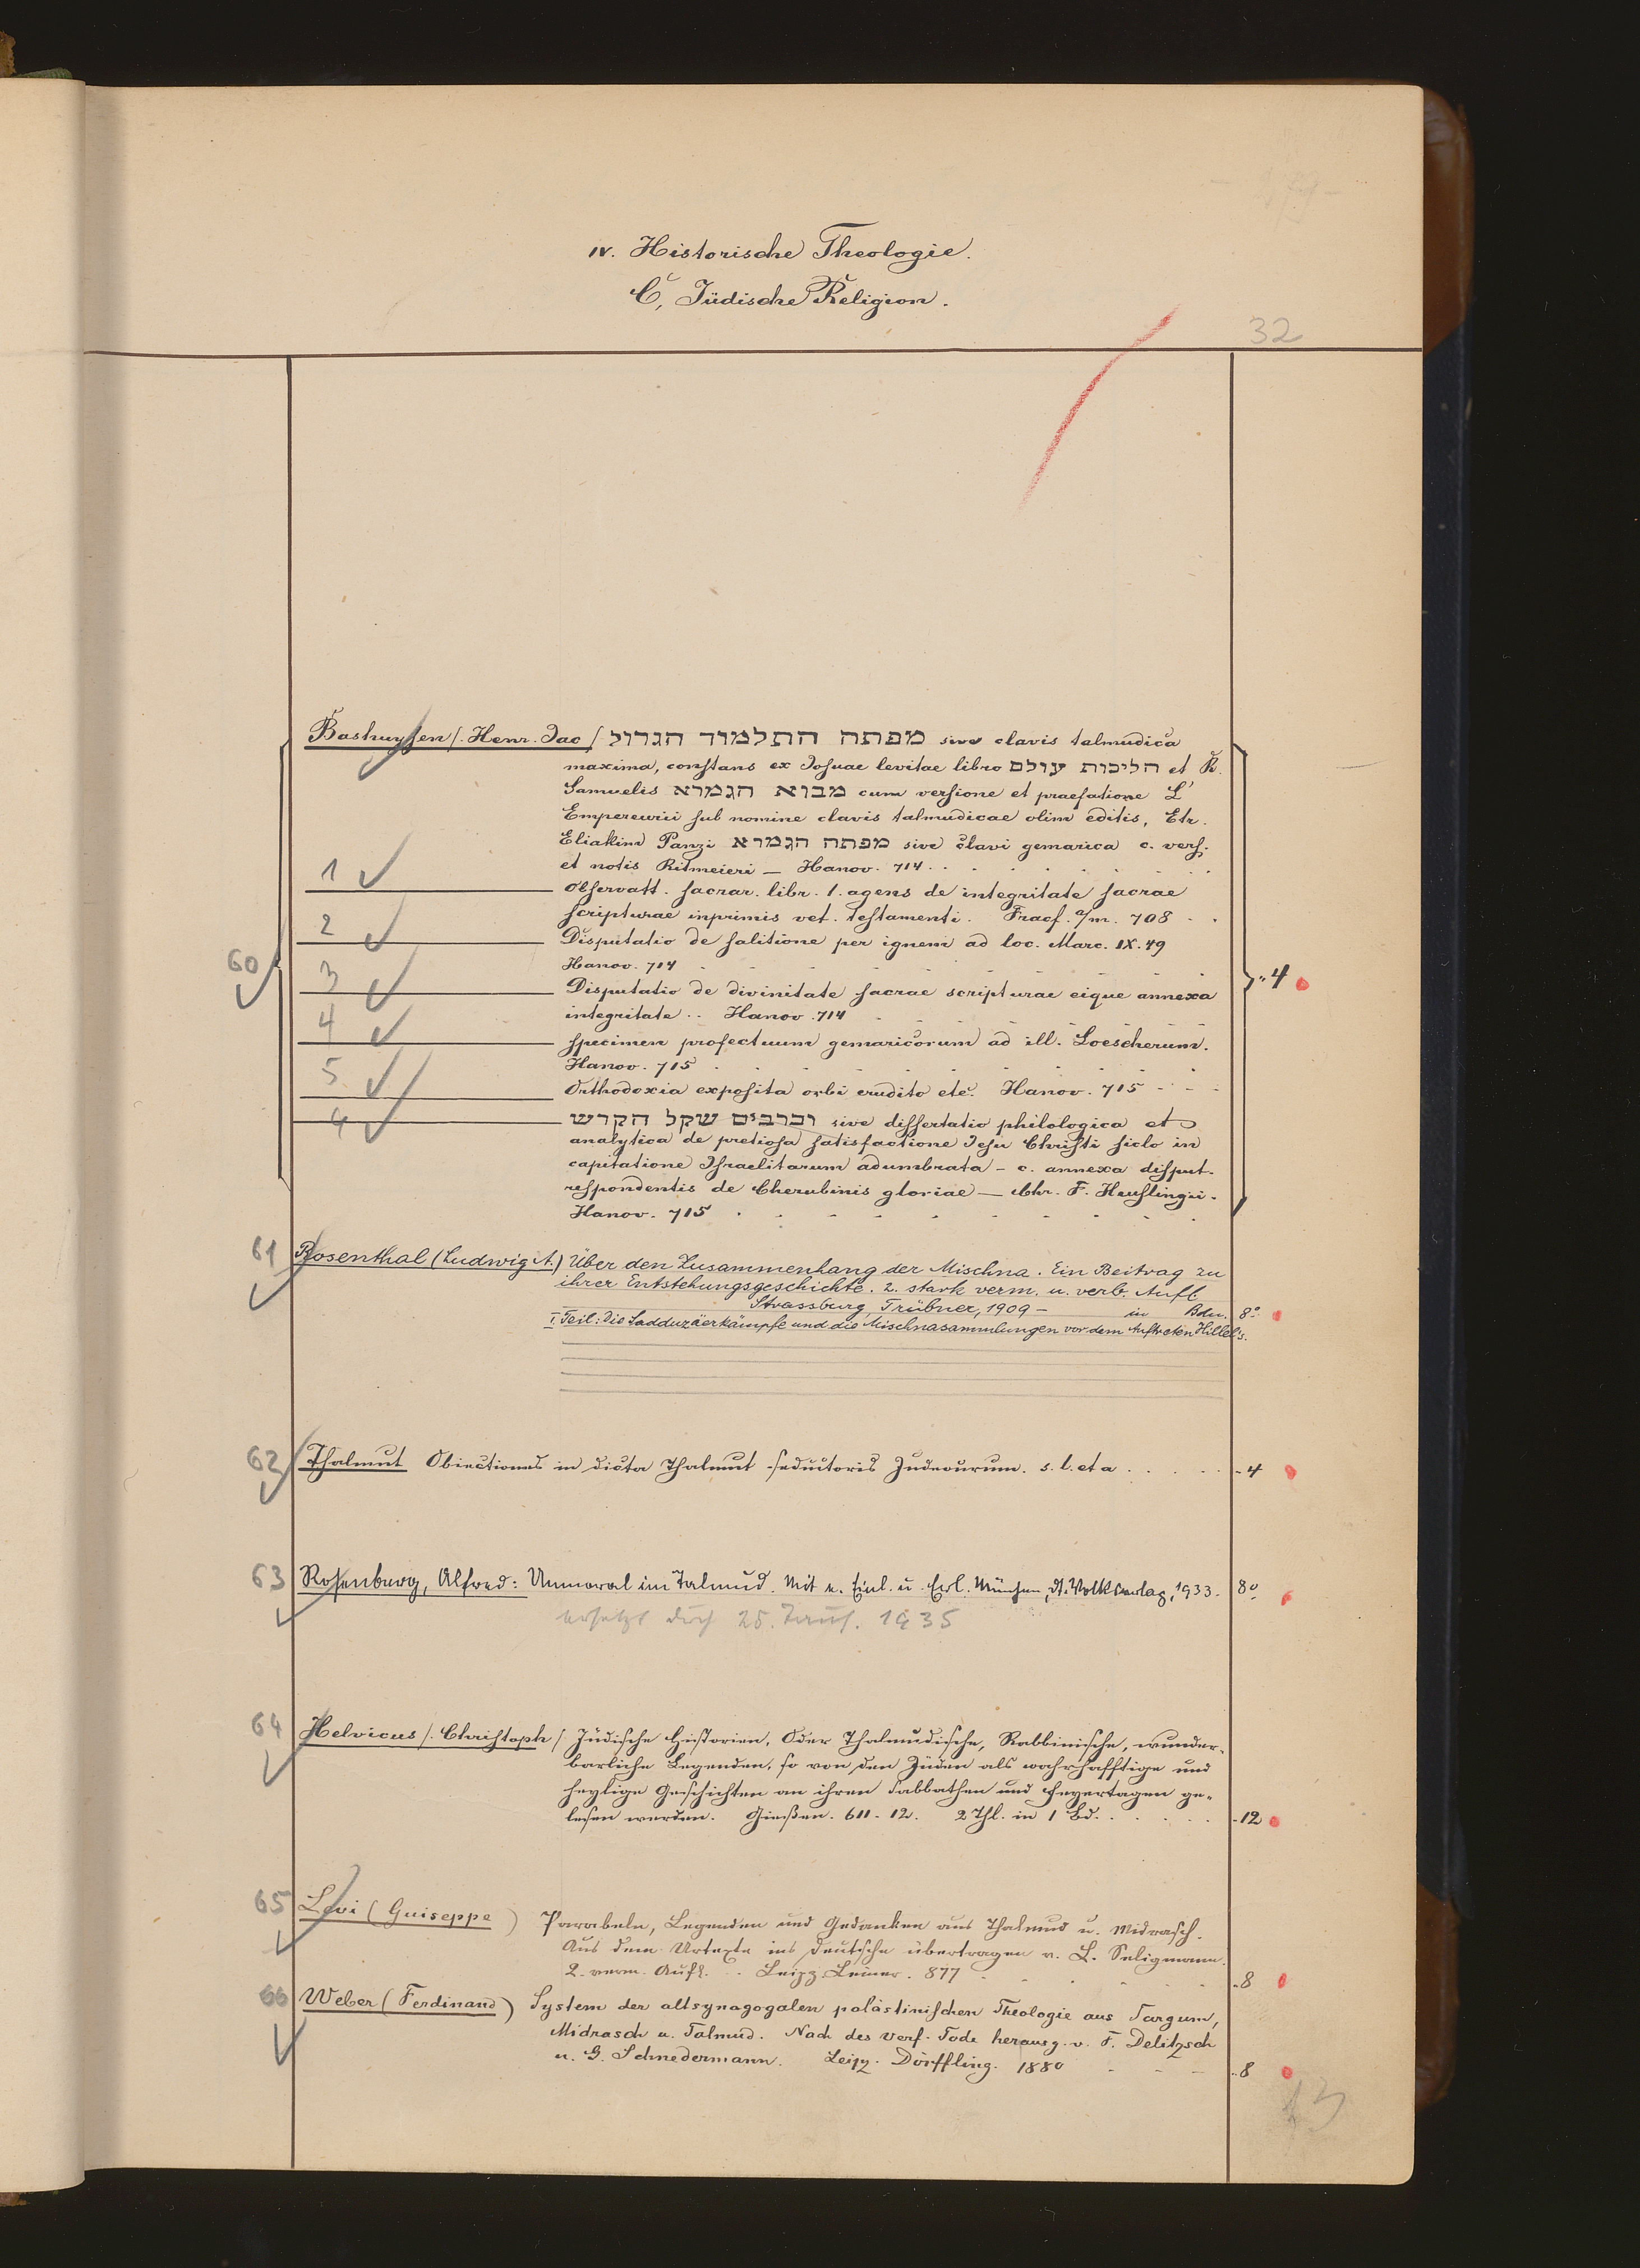 IV. Historische Theologie.
C, Jüdische Religion.
32
60
Bashuysen /. Henr. Jac / מפתח התלמוד הגדול sive clavis talmudica
maxima, constans ex Josuae levitae libro הליכות עולם et R.
Samuelis מבוא הגמרא cum versione et praefatione L'
Empereurii sub nomine clavis talmudicae olim editis, Etr.
Eliakim Panzi מפתח הגמרא sive clavi gemarica c. vers.
et notis Ritmeieri — Hanov. 714 . .
1 Observatt. sacrar. libr. 1. agens de integritate sacrae
scripturae inprimis vet. testamenti. Fracf. a/m. 708 - .
2 Disputatio de salitione per ignem ad loc. Marc. IX. 49
Hanov. 714
3 Disputatio de divinitate sacrae scripturae eique annexa
integritate . . Hanov. 714
4 specimen profectuum gemaricorum ad ill. Loescherum.
Hanov. 715
5 Orthodoxia exposita orbi erudito etc. Hanov. 715 - - -
וכרבים שקל הקדש sive dissertatio philologica et
analytica de pretiosa satisfactione Jesu Christi siclo in
capitatione Israelitarum adumbrata - c. annexa disput.
respondentis de Cherubinis gloriae — Chr. F. Heuslingii.
Hanov. 715
" 4
61 Rosenthal (Ludwig A.) Über den Zusammenhang der Mischna. Ein Beitrag zu
ihrer Entstehungsgeschichte. 2. stark verm. u. verb. Aufl
Strassburg, Trübner, 1909 - in Bdn. 8°
I. Teil: Die Sadduzäerkämpfe und die Mischnasammlungen vor dem Auftreten Hillel's.
62 Thalmut Obiectiones in dicta Thalmut seductoris Judeourum. s. l. et a . . . . . - 4
63 Rosenberg, Alfred: Unmoral im Talmud. Mit e. Einl. u. Erl. München, Dt. Volksverlag, 1933. 8°
ersetzt durch 25. Taus. 1935
64 Helvicus /. Christoph / Jüdische Historien, Oder Thalmudische, Rabbinische, wunder-
barliche Legenden, so von den Jüden als wahrhafftige und
heylige Geschichten an ihren Sabbathen und Feyertagen ge-
lesen werden. Gießen. 611-12. 2 Thl. in 1 Bd. . . . . . - 12
65 Levi (Guiseppe) Parabeln, Legenden und Gedanken aus Thalmud u. Midrasch.
Aus dem Urtexte ins Deutsche übertragen v. L. Seligmann.
2. verm. Aufl. . . Leipz. Leiner. 877 - 8
66 Weber (Ferdinand) System der altsynagogalen palästinischen Theologie aus Targum,
Midrasch u. Talmud. Nach des Verf. Tode herausg. v. F. Delitzsch
u. G. Schnedermann. Leipz. Dörffling. 1880 - - - .. 8
13